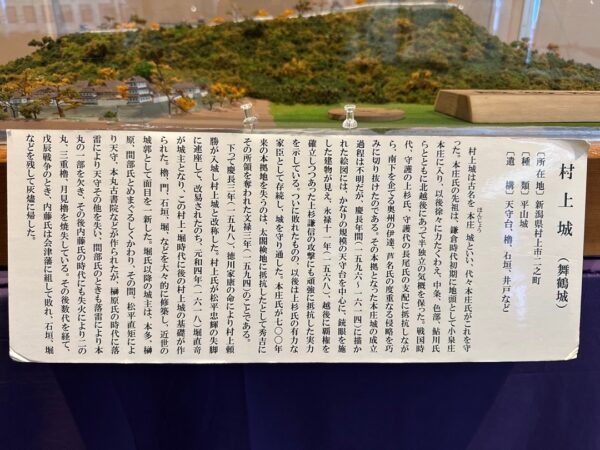 村上城（舞鶴城）
〔所在地〕新潟県村上市二之町
〔種　類〕平山城
〔遺　構〕天守台、櫓、石垣、井戸など
村上城は古名を本庄城といい、代々本庄氏がこれを守
ほんじょう
った。本庄氏の先祖は、鎌倉時代初期に地頭として小泉庄
本庄に入り、以後徐々に力をたくわえ、中条、色部、鮎川氏
らとともに北越後にあって半独立の気概を保った。戦国時
代、守護の上杉氏、守護代の長尾氏の支配に抵抗しなが
ら、南下を企てる奥州の伊達、芦名氏の度重なる侵略を巧
みに切り抜けたのである。その本拠となった本庄城の成立
過程は不明だが、慶長年間（一五九六〜一六一四）に描か
れた絵図には、かなりの規模の天守台を中心に、銃眼を施
した建物が見え、永禄十一年（一五六八）、越後に覇権を
確立しつつあった上杉謙信の攻撃にも頑強に抵抗した実力
を示している。ついに敗れたものの、以後は上杉氏の有力な
家臣として存続し、城を守り通した。本庄氏が七〇〇年
来の本拠地を失うのは、太閤検地に抵抗したとして秀吉に
その所領を奪われた文禄三年（一五九四）のことである。
下って慶長三年（一五九八）、徳川家康の命により村上頼
勝が入城し村上城と改称した。村上氏が松平忠輝の失脚
に連座して、改易されたのち、元和四年（一六一八）、堀直竒
が城主となり、この村上・堀時代に後の村上城の基礎が作
られた。櫓、門、石垣、堀、などを大々的に修築し、近世の
城郭として面目を一新した。堀氏以降の城主は、本多、榊
原、間部氏とめまぐるしくかわり、その間、松平直矩によ
り天守、本丸古書院などが作られたが、榊原氏の時代に落
雷により天守その他を失い、間部氏のときも落雷により本
丸の一部を欠き、その後内藤氏の時代にも失火により二の
丸、三重櫓、月見櫓を焼失している。その後数代を経て、
戊辰戦争のとき、内藤氏は会津藩に組して敗れ、石垣、堀
などを残して灰燼に帰した。